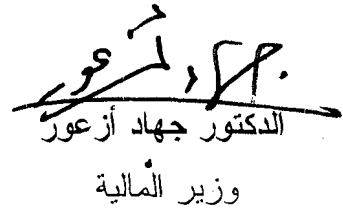 الدكتور جهاد أزعور
وزير المالية